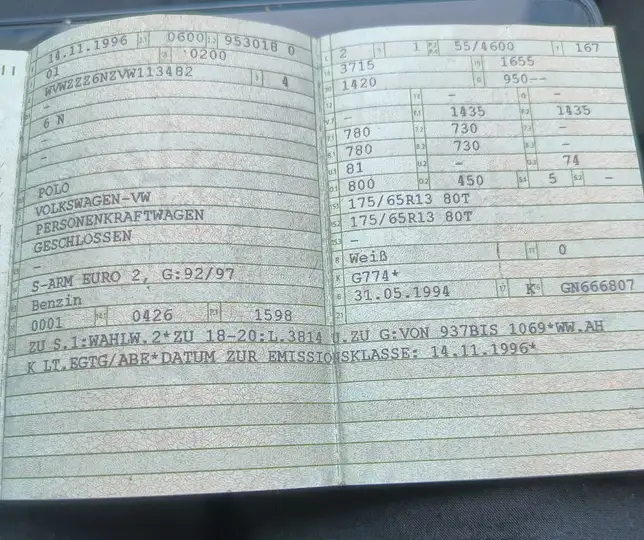 14.11.1996 0600 953018 0
01 0200
WVWZZZ6NZVW113482 4
-
6 N
-
-
POLO
VOLKSWAGEN-VW
PERSONENKRAFTWAGEN
GESCHLOSSEN
-
S-ARM EURO 2, G:92/97
Benzin
0001 0426 1598
2 1 55/4600 167
3715 1655
1420 950--
- -
- 1435 1435
780 730 -
780 730 -
81 - 74
800 450 5 -
175/65R13 80T
175/65R13 80T
-
Weiß 0
G774*
31.05.1994 K GN666807
ZU S.1:WAHLW.2*ZU 18-20:L.3814 U.ZU G:VON 937BIS 1069*WW.AH
K LT.EGTG/ABE*DATUM ZUR EMISSIONSKLASSE: 14.11.1996*